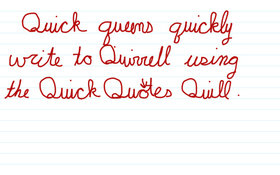 Quick queens quickly
write to Quirrell using
the Quick Quotes Quill.